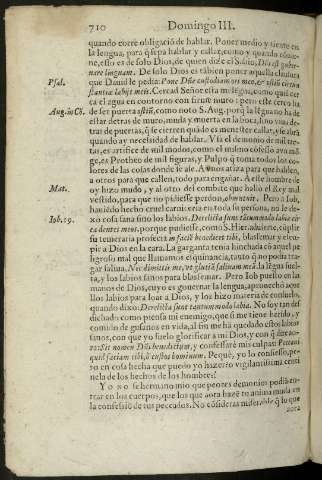 710 Domingo III.
quando corre obligació de hablar. Poner medio y tiento en
la lengua, para q̃ sepa hablar y callar, como y quando conuie-
ne, esso es de solo Dios, de quien dize el Sabio, Dei est guber-
nare linguam. De solo Dios es tábien poner aquella clausura
Psal.
que Dauid le pedia: Pone Dñe custodiam ori meo, & ostium circun
stantiæ labijs meis. Cercad Señor esta mi lengua, como quié cer
ca el agua en contorno con firme muro: pero esse cerco ha
Aug. in Cõ.
de ser puerta ostiũ, como noto S. Aug. porq̃ la lengua no ha de
estar detras de muro, muda y muerta en la boca, sino detras de
puertas, q̃ se cierren quãdo es menester callar, y se abrã
quando ay necessidad de hablar.
colores de las cosas donde se ase. A vnos ata para que hablen,
a otros para que callen, todo para engañar. A este hombre de
Mat.
oy hizo mudo, y al otro del combite que hallò el Rey mal
vestido, para que no pudiesse perdon, obmutuit. Pero a Iob,
Iob. 19.
auiẽdo hecho cruel carniceria en toda su persona, no le de-
xò cosa sana sino los labios: Derelicta sunt tãtummodo labia cir
ca dentes meos, porque pudiesse, como S. Hier. aduierte, cũplir
su temeraria profecia in faciẽ benedicet tibi, blasfemar y escu-
pir a Dios en la cara. La garganta tenia hinchada cõ aquel pe
ligroso mal que llamamos esquinancia, tanto q̃ no podia tra-
gar saliua. Nec dimittis me, vt glutiã saliuam meã. la lẽgua suel-
ta, y los labios sanos para blasfemar. Pero Iob puesto en las
manos de Dios, cuyo es gouernar la lengua, aprouechò aque
llos labios para loar a Dios, y los hizo materia de consuelo,
quando dixo: Derelicta sunt tantummodo labia. No soy tan des-
dichado como piensa mi enemigo, que si me tiene herido, y
comido de gusanos en vida, al fin me hã quedado estos labios
sanos, con que yo suelo glorificar a mi Dios, y con q̃
re: Sit nomen Dñi benedictum, y confessarè mis culpas: Peccaui
quid faciam tibi, ò custos hominum. Pequè, yo lo confiesso, pe-
ro en cosa hecha que puedo yo hazer ò vigilantissima centi
nela de los hechos de los hombres?
Y o no se hermano mio que peores demonios podiã en-
trar en los cuerpos, que los que aora hazẽ tu anima muda en
la confessiõ de tus peccados. No cõsideras miserable q̃ lo que
aora